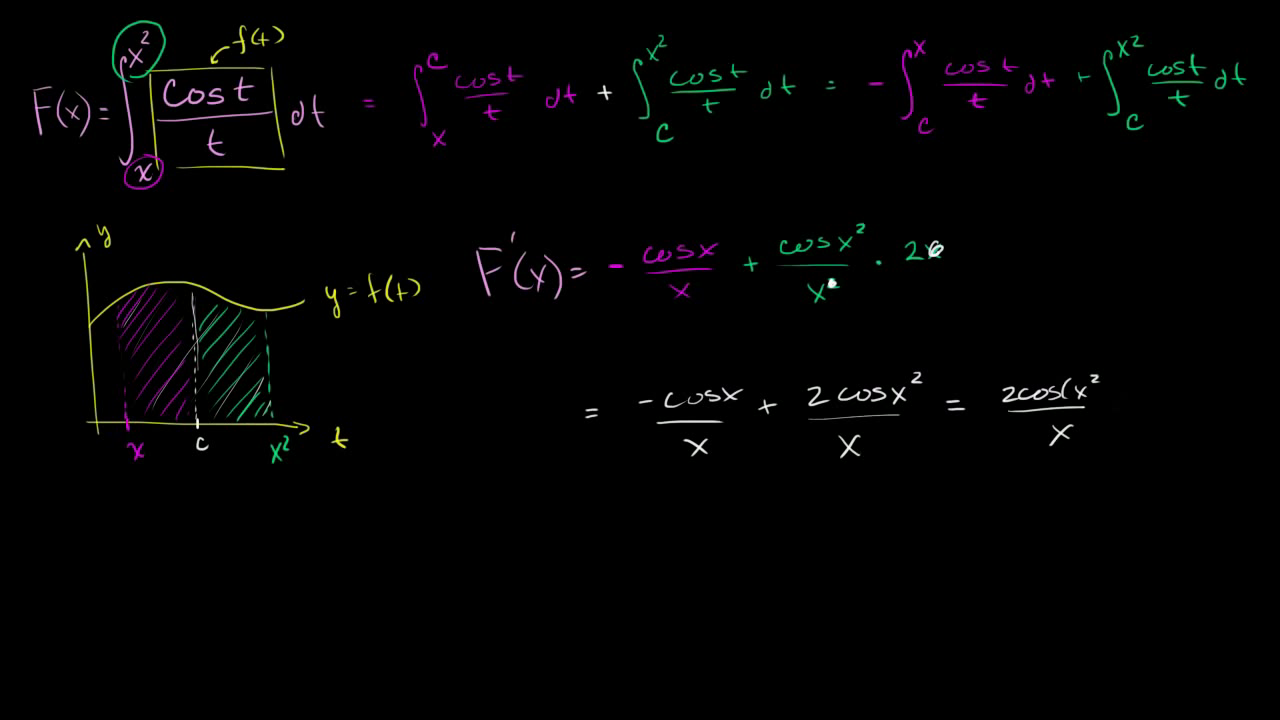 f(t)
F(x) = ∫_x^{x²} cos t / t dt = ∫_x^c cos t / t dt + ∫_c^{x²} cos t / t dt = - ∫_c^x cos t / t dt + ∫_c^{x²} cos t / t dt
y
y = f(t)
x c x² t
F'(x) = - cos x / x + cos x² / x² · 2x
= -cos x / x + 2 cos x² / x = 2cos(x² / x